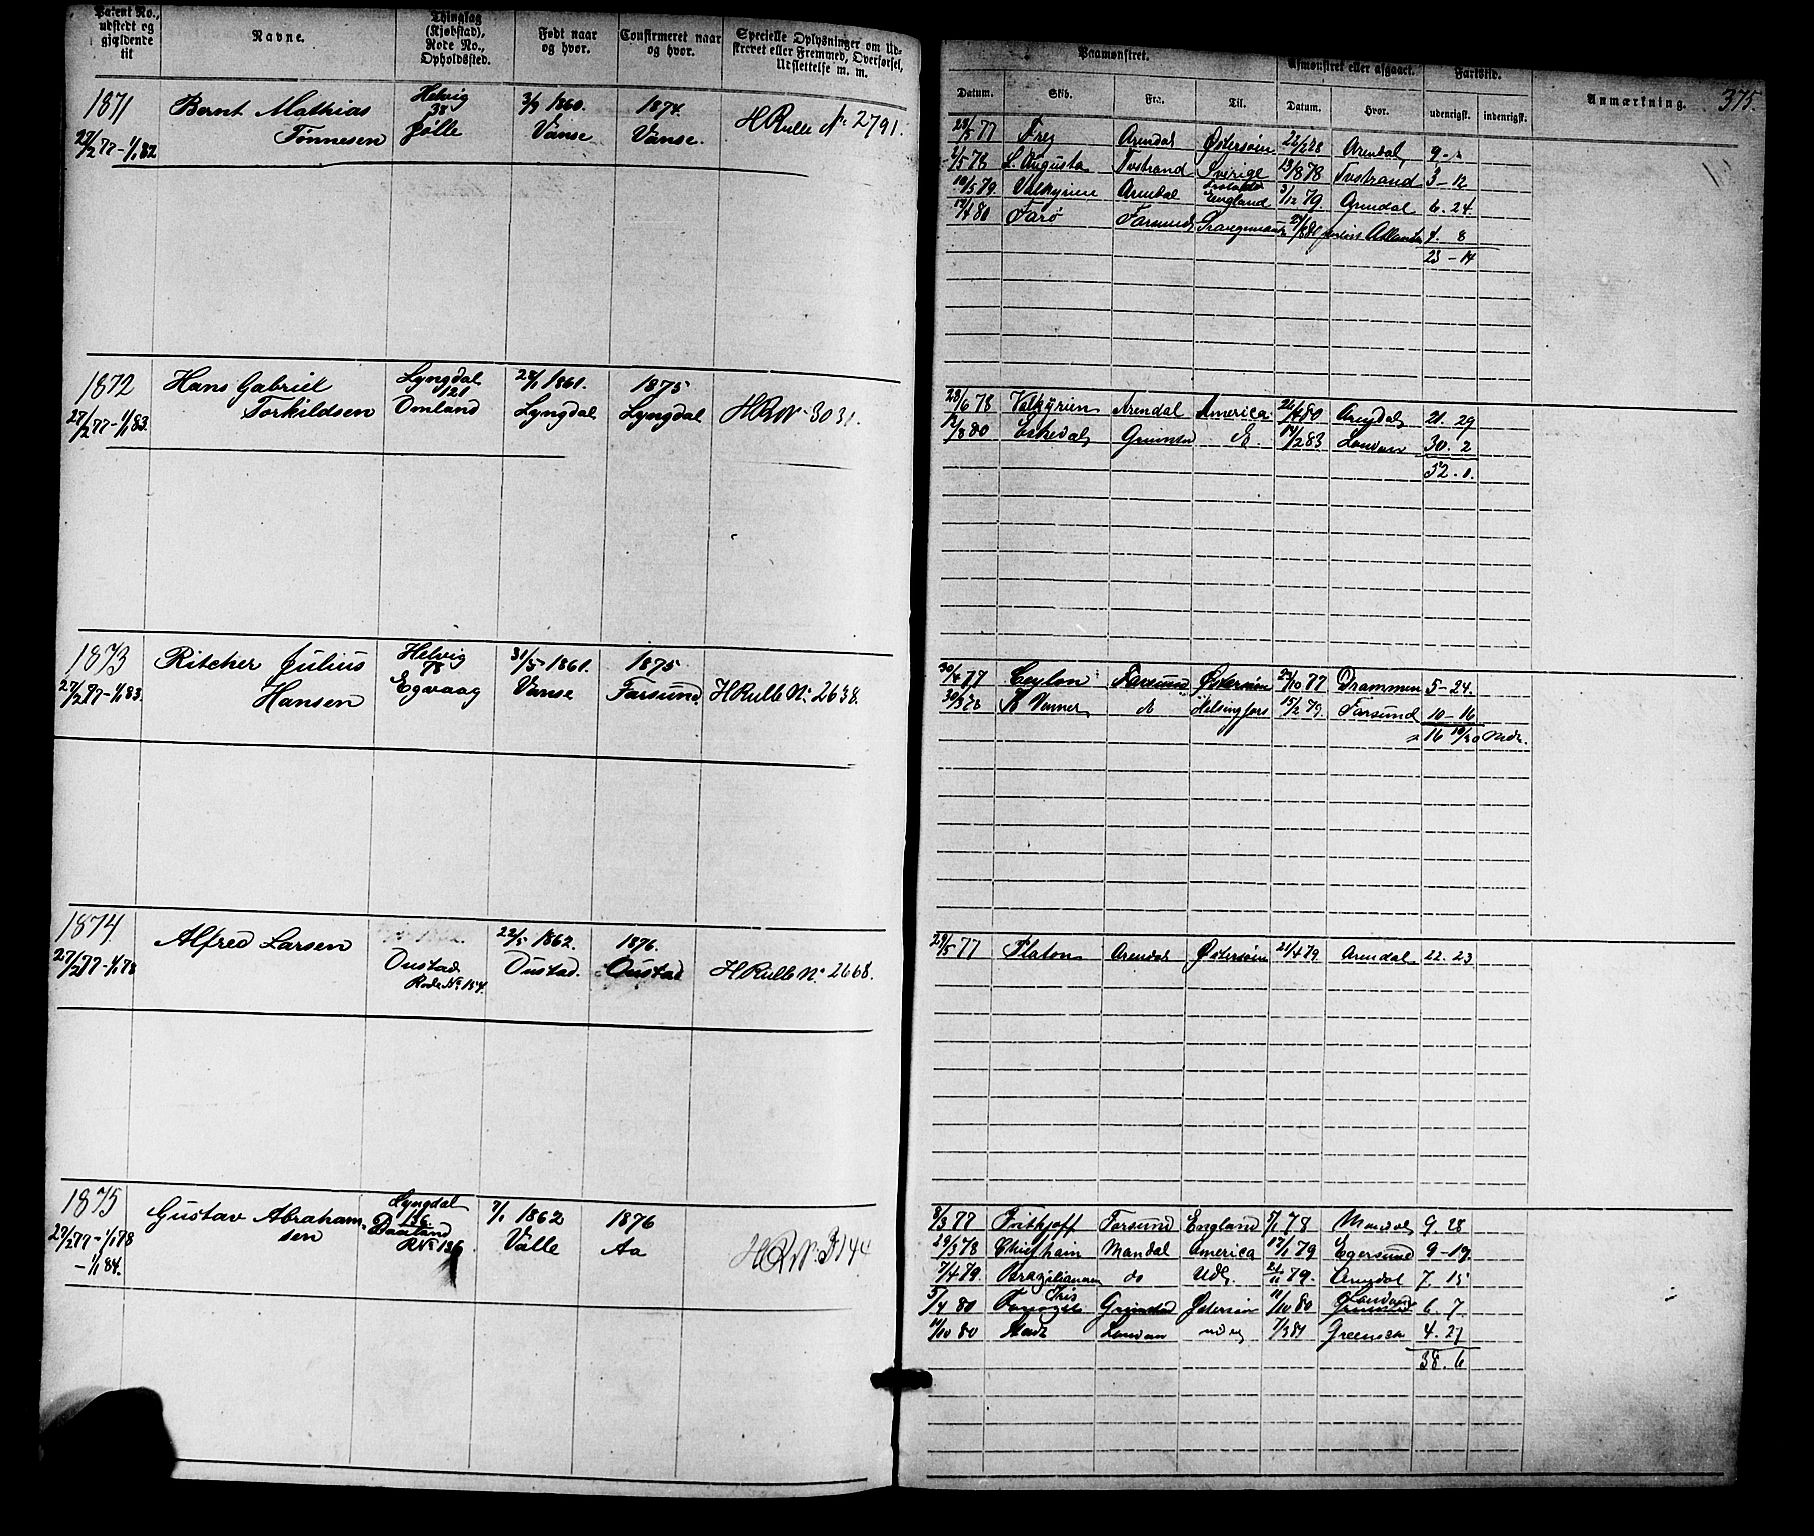 Patent No., udstedt og gjældende til
Navne.
Thinglag (Kjøbstad), Rode No., Opholdssted.
Født naar og hvor.
Confirmeret naar og hvor.
Specielle Oplysninger om Udskrevet eller Fremmed, Overførsel, Udslettelse m. m.
1871
27/2 77 - 1/1 82
Bernt Mathias
Tønnesen
Helvig
38
Jølle
3/9 1860.
Vanse
1874.
Vanse.
H Rulle No 2791.
1872
27/2 77 - 1/1 83.
Hans Gabriel
Torkildsen
Lyngdal
121
Omland
1861.
Lyngdal
1875
Lyngdal
H R No 3031.
1873
27/2 77 - 1/1 83.
Ritcher Julius
Hansen
Helvig
78
Egvaag
31/5 1861.
Vanse
1875
Farsund.
H Rulle No 2638.
1874
27/2 77 - 1/1 78
Alfred Larsen
Oustad.
Rode No 154.
22/5 1862.
Oustad.
1876.
Oustad
H Rulle No 2668.
1875
27/2 77 - 1/1 78
- 1/1 84.
Gustav Abraham-
sen
Lyngdal
136.
Baaland
R No 136
7/1 1862
Valle
1876
Aa
H R No 3144
375.
Paamønstret.
Afmønstret eller afgaaet.
Fartstid.
Anmærkning.
Datum. Skib. Fra. Til. Datum. Hvor. udenrigst. indenrigst.
28/5 77 Frej Arendal Østersøen Arendal 9 - "
2/5 78 L. Augusta Tvstrand Sverige 13/8 78 Tvstrand 3 - 12
10/5 79 Valkyrien Arendal England 3/12 79 Arendal 6. 24.
80 Farø Farsund 4. 8
23 - 14
28/6 78 Valkyrien Arendal America 80 Arendal 21. 29
12/8 80 Eskedal Grimstad 14/2 83 London 30. 2
52. 1.
30/4 77 Ceylon Farsund Østersøen 24/10 77 Drammen 5 - 24.
30/3 78 Helsingfors 15/2 79. Farsund 10 - 16
16 10/30 Mdr.
29/5 77 Platon Arendal Østersøen 21/4 79 Arendal 22. 23
8/3 77 Frithjoff Farsund England 5/1 78 Mandal 9. 28
29/3 78 Mandal America 17/1 79 Egersund 9 - 19
7/4 79. Brazilianeren do Udl. 21/11 79. Arendal 7. 15
5/4 80 Iris Grimstad Østersøen 11/10 80 London 6. 7
11/10 80 London 7/3 81 4. 27
38. 6